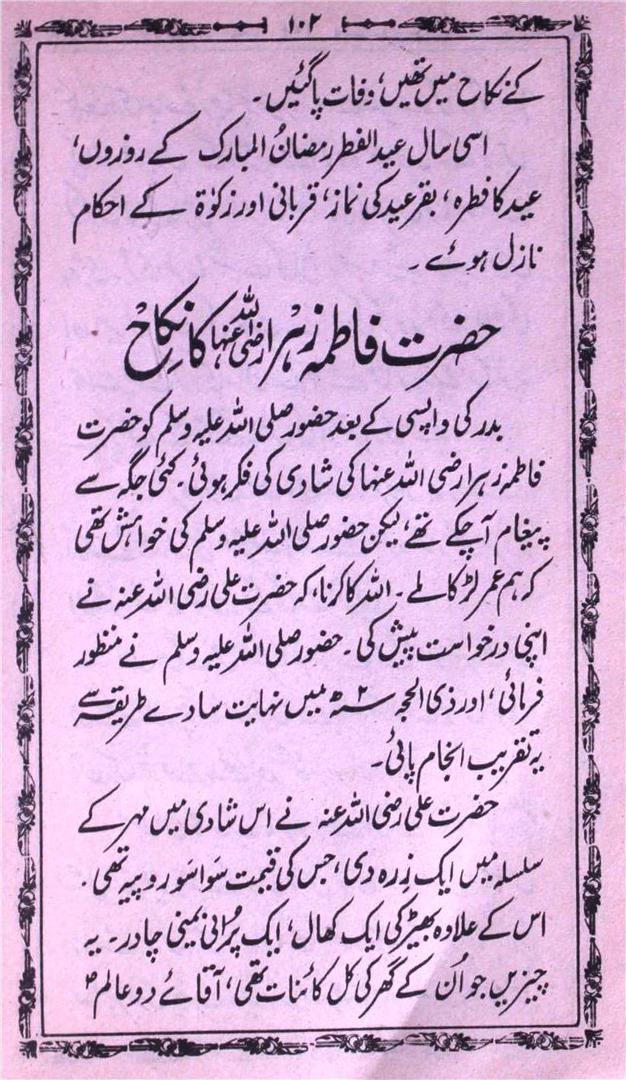 ۱۰۲
کے نکاح میں تھیں، وفات پا گئیں۔
اسی سال عید الفطر رمضانُ المبارک کے روزوں،
عید کا فطرہ، بقر عید کی نماز، قربانی اور زکوٰۃ کے احکام
نازل ہوئے۔
حضرت فاطمہ زہرا رضی اللہ عنہا کا نکاح
بدر کی واپسی کے بعد حضور صلی اللہ علیہ وسلم کو حضرت
فاطمہ زہرا رضی اللہ عنہا کی شادی کی فکر ہوئی۔ کئی جگہ سے
پیغام آ چکے تھے، لیکن حضور صلی اللہ علیہ وسلم کی خواہش تھی
کہ ہم عمر لڑکا ملے۔ اللہ کا کرنا، کہ حضرت علی رضی اللہ عنہ نے
اپنی درخواست پیش کی۔ حضور صلی اللہ علیہ وسلم نے منظور
فرمائی، اور ذی الحجہ ۲ھ میں نہایت سادے طریقہ سے
یہ تقریب انجام پائی۔
حضرت علی رضی اللہ عنہ نے اس شادی میں مہر کے
سلسلہ میں ایک زِرہ دی، جس کی قیمت سَوا سَو روپیہ تھی۔
اس کے علاوہ بھیڑ کی ایک کھال، ایک پُرانی یمینی چادر۔ یہ
چیزیں جو اُن کے گھر کی کل کائنات تھی، آقائے دو عالم ﷺ